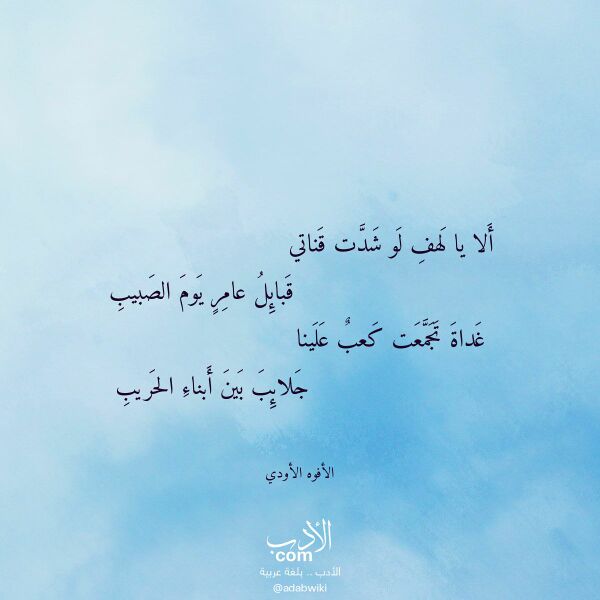 أَلا يا لَهفِ لَو شَدَّت قَناتي
قَبائِلُ عامِرٍ يَومَ الصَبيبِ
غَداةَ تَجَمَّعَت كَعبٌ عَلَينا
جَلائِبَ بَينَ أَبناءِ الحَريبِ
الأفوه الأودي
الأدب
com
الأدب .. بلغة عربية
@adabwiki